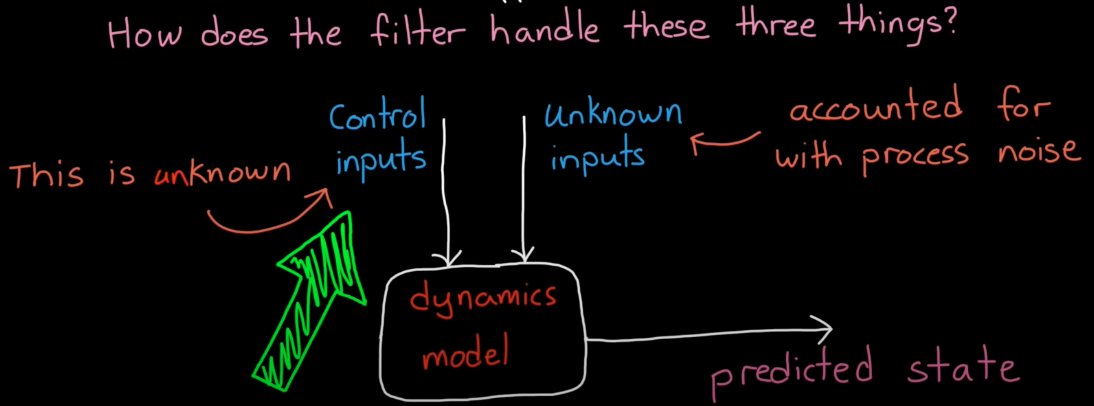 How does the filter handle these three things?
Control
inputs
Unknown
inputs
accounted for
with process noise
This is unknown
dynamics
model
predicted state